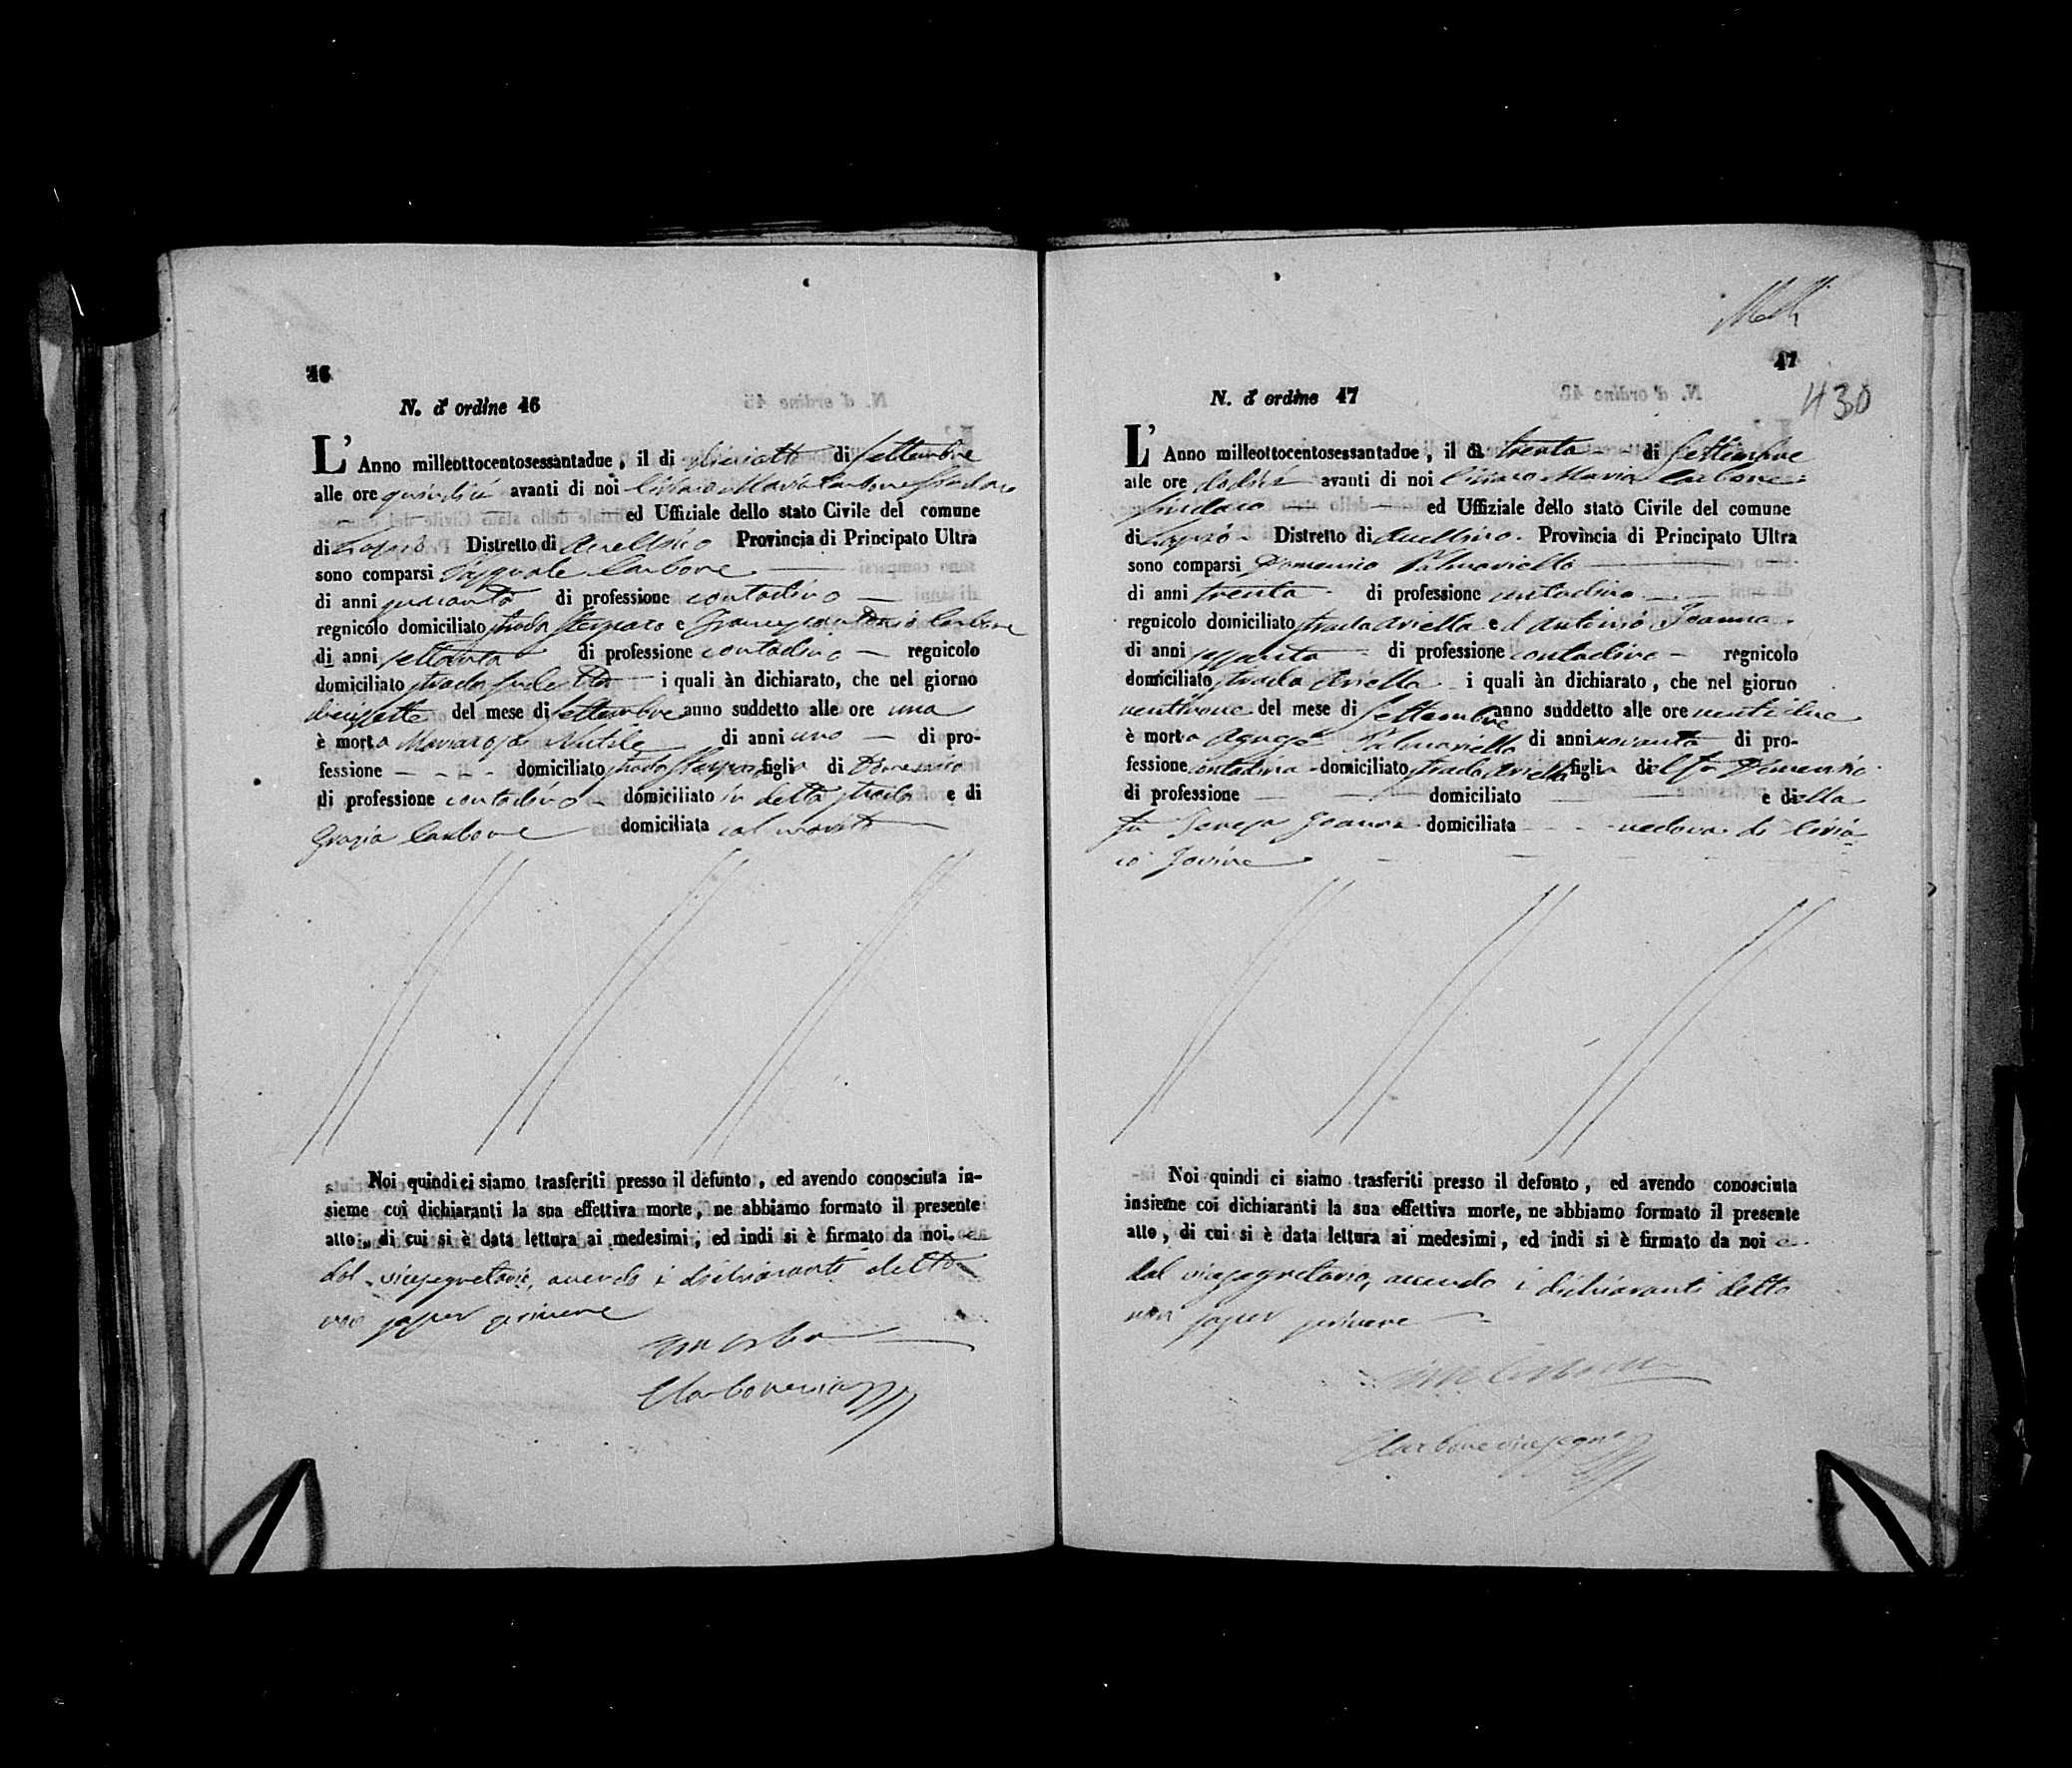 46
N. d' ordine 46
L' Anno milleottocentosessantadue, il di dieciotto di Settembre
alle ore quindici avanti di noi Ciriaco Maria Carbone Sindaco
ed Uffiziale dello stato Civile del comune
di Distretto di Avellino Provincia di Principato Ultra
sono comparsi Pasquale Carbone
di anni quaranta di professione contadino
regnicolo domiciliato strada e Francescantonio Carbone
di anni settanta di professione contadino regnicolo
domiciliato strada sudetta i quali àn dichiarato, che nel giorno
diecisette del mese di Settembre anno suddetto alle ore una
è morta Mariarosa di anni uno di pro-
fessione domiciliato strada figlia di Domenico
di professione contadino domiciliato in detta strada e di
Grazia Carbone domiciliata col marito
Noi quindi ci siamo trasferiti presso il defunto, ed avendo conosciuta in-
sieme coi dichiaranti la sua effettiva morte, ne abbiamo formato il presente
atto, di cui si è data lettura ai medesimi, ed indi si è firmato da noi. e
dal vicesegretario, avendo i dichiaranti detto
non saper scrivere
47
430
N. d' ordine 47
L' Anno milleottocentosessantadue, il di trenta di Settembre
alle ore dodici avanti di noi Ciriaco Maria Carbone
Sindaco ed Uffiziale dello stato Civile del comune
di Distretto di Avellino. Provincia di Principato Ultra
sono comparsi Domenico Palmariello
di anni trenta di professione contadino
regnicolo domiciliato strada Ariella e d Antonio Ioanna
di anni sessanta di professione contadino regnicolo
domiciliato strada Ariella i quali àn dichiarato, che nel giorno
ventinove del mese di Settembre anno suddetto alle ore ventidue
è morta Agnese Palmariello di anni novanta di pro-
fessione contadina domiciliato strada Ariella figlia del fu Domenico
di professione domiciliato e di ella
fu Teresa Ioanna domiciliata vedova di Ciria-
co Iovine
Noi quindi ci siamo trasferiti presso il defonto, ed avendo conosciuta
insieme coi dichiaranti la sua effettiva morte, ne abbiamo formato il presente
atto, di cui si è data lettura ai medesimi, ed indi si è firmato da noi e
dal vicesegretario, avendo i dichiaranti detto
non saper scrivere
Carbone vicesegr